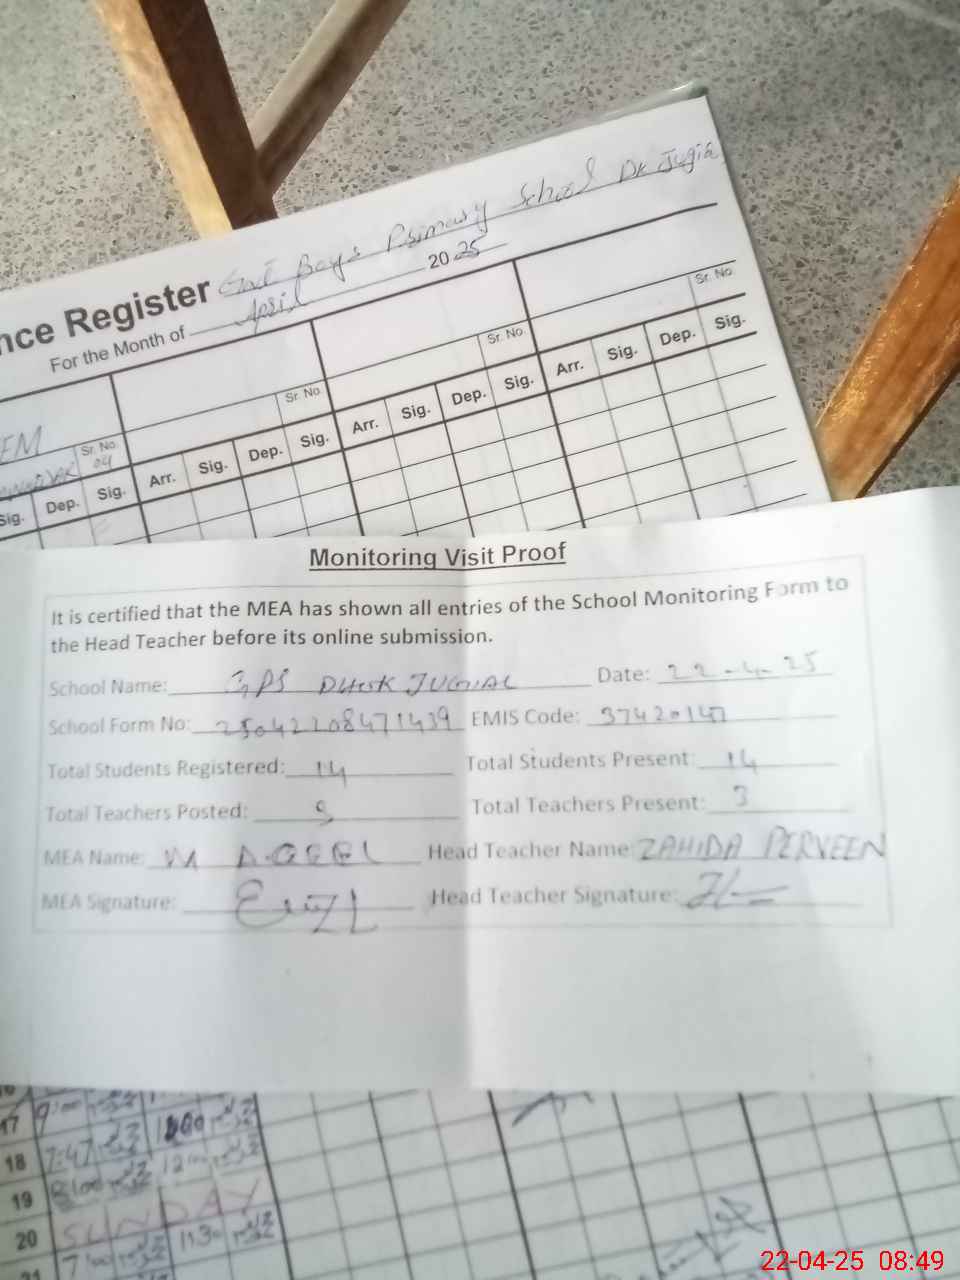 Govt Boys Primary School Dk Jugia
nce Register
For the Month of April 2025
Sr. No. Sr. No. Sr. No. Sr. No.
EM
04
Sig. Dep. Sig. Arr. Sig. Dep. Sig. Arr. Sig. Dep. Sig. Arr. Sig. Dep. Sig.
Monitoring Visit Proof
It is certified that the MEA has shown all entries of the School Monitoring Form to
the Head Teacher before its online submission.
School Name: GPS DHOK JUGIAL Date: 22-4-25
School Form No: 25042208471439 EMIS Code: 37420147
Total Students Registered: 14 Total Students Present: 14
Total Teachers Posted: Total Teachers Present: 3
MEA Name: M AQEEL Head Teacher Name: ZAHIDA PERVEEN
MEA Signature: Head Teacher Signature:
17
18 7:47
19 8:00 12:00
20 SUNDAY
21 7:00 11:30
22-04-25 08:49